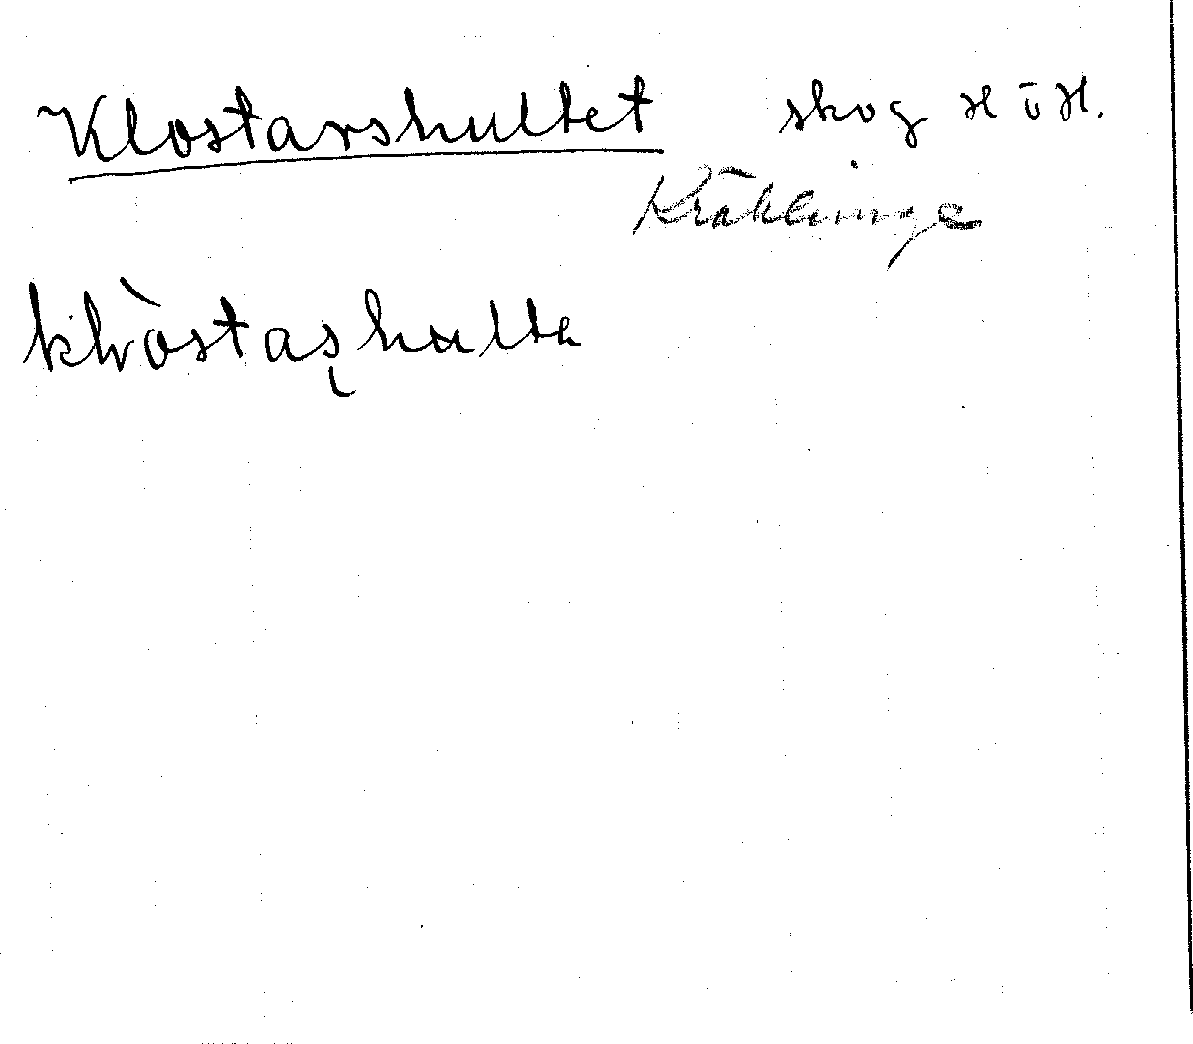 Klostarshultet skog H ö H.
Kräklinge
klòstaʂhulta